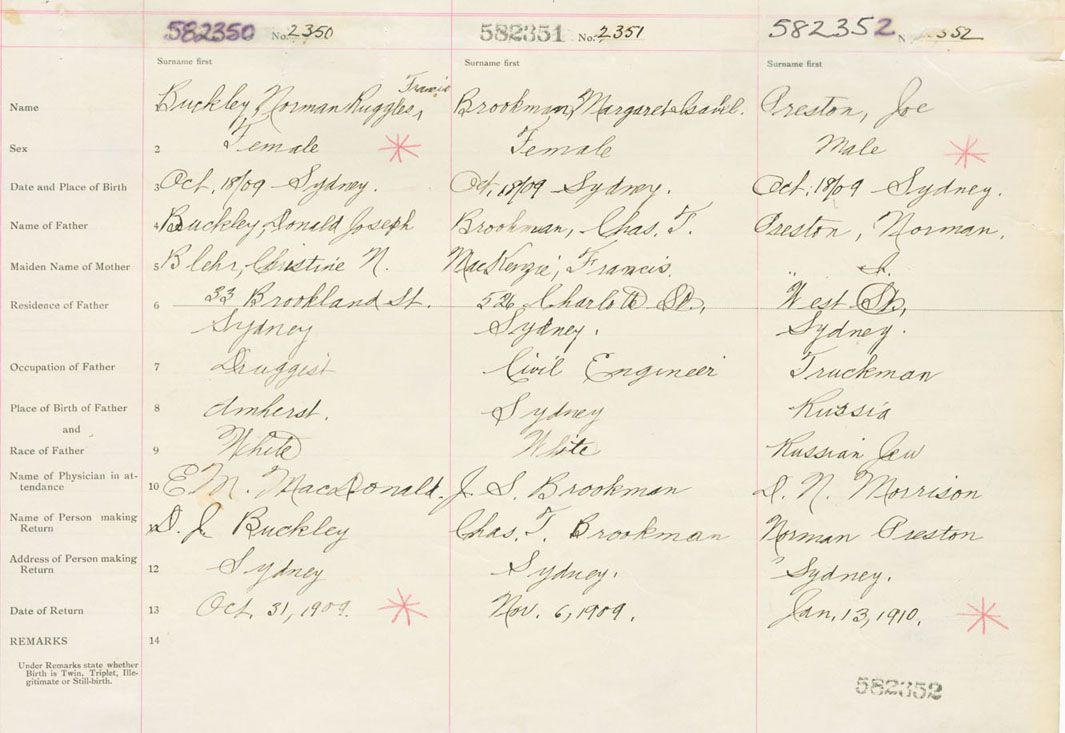 582350 No. 2350 582351 No. 2351 582352 N 352
Surname first Surname first Surname first
Francis
Name 1 Buckley, Norman Ruggles, Brookman, Margaret Isabel. Preston, Joe
Sex 2 Female Female Male
Date and Place of Birth 3 Oct. 18/09 Sydney. Oct. 18/09 Sydney. Oct. 18/09 Sydney.
Name of Father 4 Buckley, Donald Joseph Brookman, Chas. T. Preston, Norman.
Maiden Name of Mother 5 Blehr, Christine N. MacKenzie, Francis. "
Residence of Father 6 33 Brookland St. 526 Charlotte St., West St,
Sydney Sydney. Sydney.
Occupation of Father 7 Druggist Civil Engineer Truckman
Place of Birth of Father 8 Amherst. Sydney Russia
and
Race of Father 9 White White Russian Jew
Name of Physician in at-
tendance 10 E M. MacDonald. J. S. Brookman D. N. Morrison
Name of Person making
Return D. J. Buckley Chas. T. Brookman Norman Preston
Address of Person making
Return 12 Sydney Sydney. Sydney.
Date of Return 13 Oct. 31, 1909. Nov. 6, 1909. Jan. 13, 1910.
REMARKS 14
Under Remarks state whether
Birth is Twin, Triplet, Ille-
gitimate or Still-birth.
582352